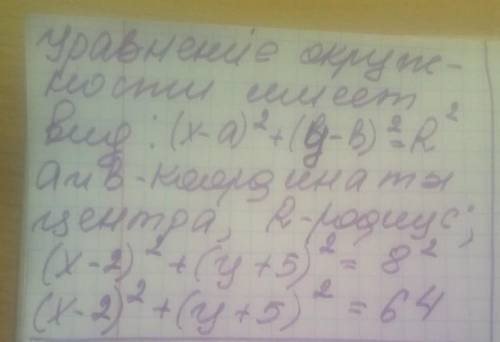 Уравнение окруж-
ности имеет
вид: (x-a)²+(y-b)²=R²
a и b-координаты
центра, R-радиус,
(x-2)²+(y+5)²=8²
(x-2)²+(y+5)²=64